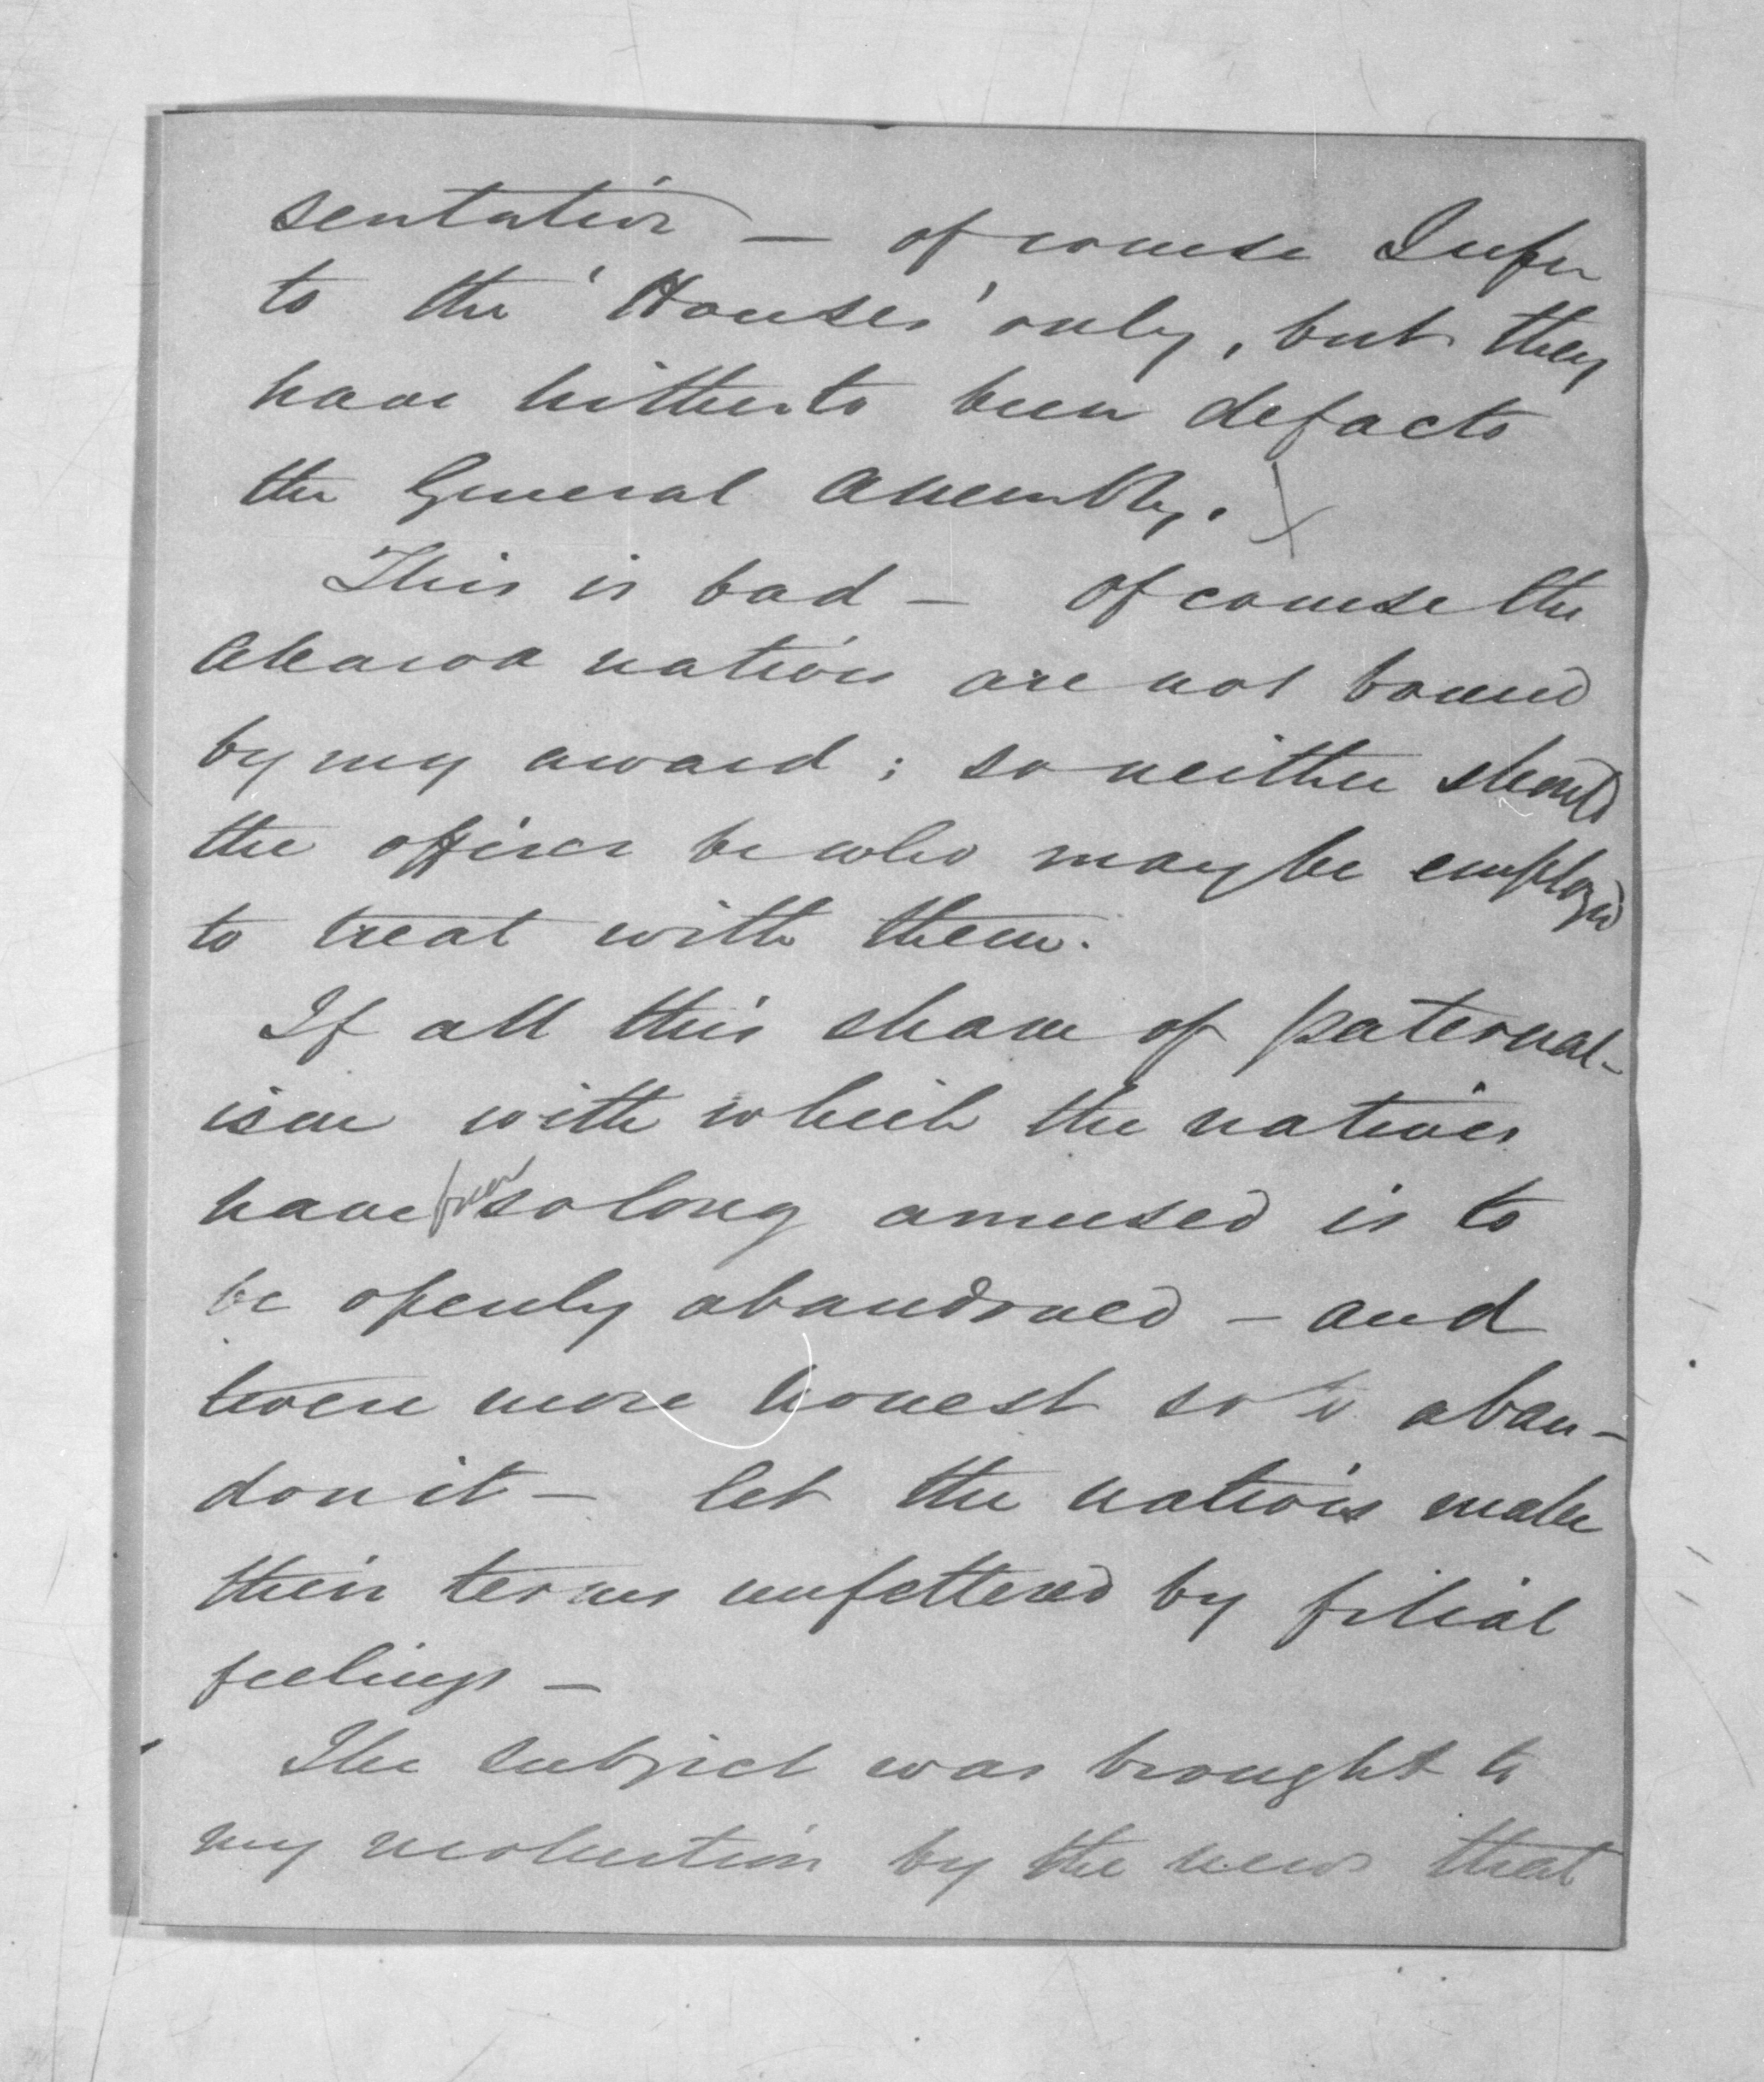 sentation — of course I refer
to the 'Houses' only, but they
have hitherto been defacto
the General Assembly. X
This is bad — of course the
Akaroa natives are not bound
by my award; so neither should
the officer be who may be employed
to treat with them.
If all this sham of paternal-
ism with which the natives
have been so long amused is to
be openly abandoned — and
twere more honest so to aban-
don it — let the natives make
their terms unfettered by filial
feelings —
The subject was brought to
my recollection by the news that